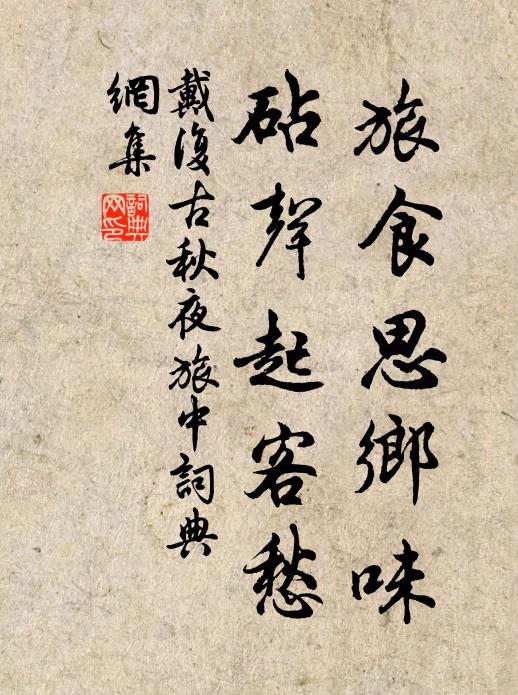 旅食思鄉味
砧聲起客愁
戴復古秋夜旅中詞典
網集
詞典
网印